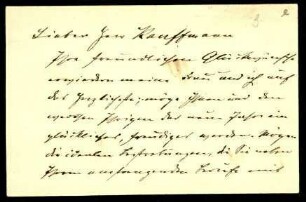 Lieber Herr Kauffmann
Ihre freundlichen Glückwünsche
erwiedern meine Frau und ich auf
das Herzlichste; möge Ihnen und den
werthen Ihrigen das neue Jahr ein
glückliches, freudiges werden. Mögen
die idealen Bestrebungen, die Sie neben
Ihrem anstrengenden Berufe mit